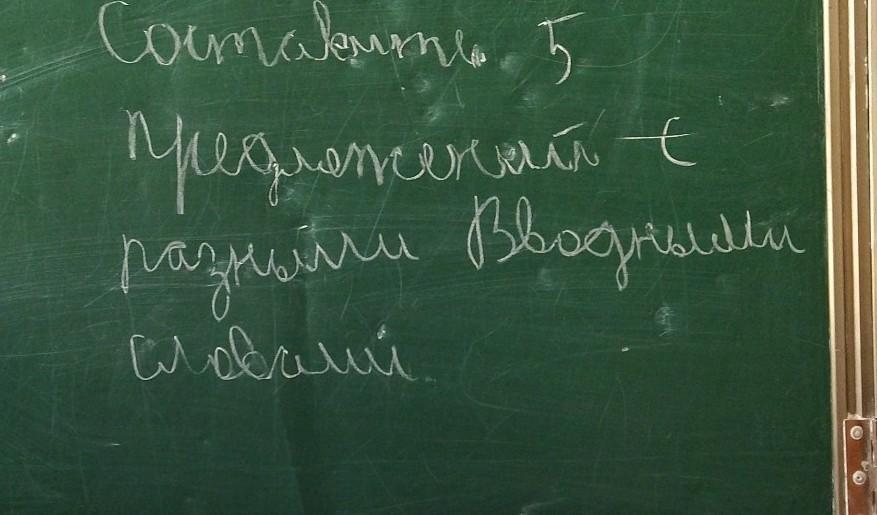 Составить 5
предложений с
разными Вводными
словами